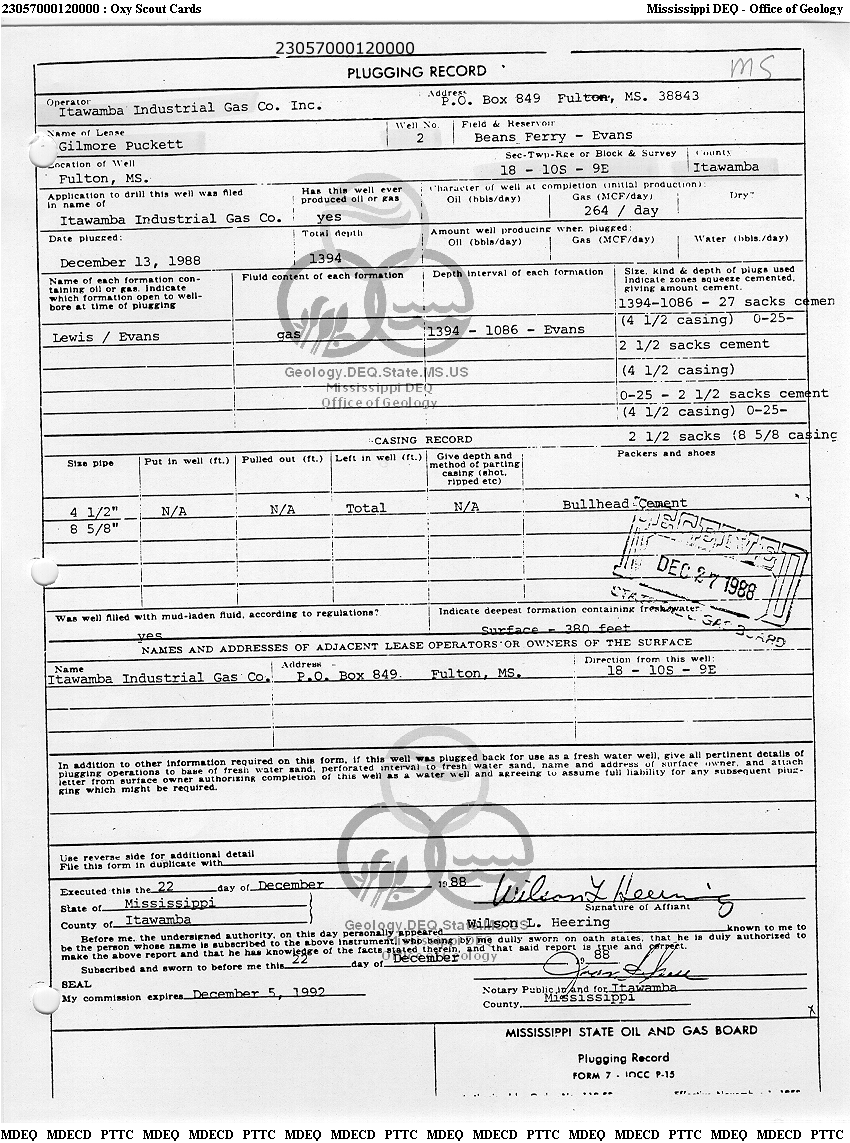 23057000120000 : Oxy Scout Cards
Mississippi DEQ - Office of Geology
23057000120000
PLUGGING RECORD
MS
Operator
Itawamba Industrial Gas Co. Inc.
Address
P.O. Box 849 Fulton, MS. 38843
Name of Lease
Gilmore Puckett
Well No.
2
Field & Reservoir
Beans Ferry - Evans
Location of Well
Fulton, MS.
Sec-Twp-Rge or Block & Survey
18 - 10S - 9E
County
Itawamba
Application to drill this well was filed
in name of
Itawamba Industrial Gas Co.
Has this well ever
produced oil or gas
yes
Character of well at completion (initial production):
Oil (bbls/day)
Gas (MCF/day)
264 / day
Dry
Date plugged:
December 13, 1988
Total depth
1394
Amount well producing when plugged:
Oil (bbls/day)
Gas (MCF/day)
Water (bbls./day)
Name of each formation con-
taining oil or gas. Indicate
which formation open to well-
bore at time of plugging
Fluid content of each formation
Depth interval of each formation
Size, kind & depth of plugs used
Indicate zones squeeze cemented,
giving amount cement.
1394-1086 - 27 sacks cemen
(4 1/2 casing) 0-25-
Lewis / Evans
gas
1394 - 1086 - Evans
2 1/2 sacks cement
(4 1/2 casing)
0-25 - 2 1/2 sacks cement
(4 1/2 casing) 0-25-
2 1/2 sacks (8 5/8 casing
Geology.DEQ.State.MS.US
Mississippi DEQ
Office of Geology
CASING RECORD
Size pipe
Put in well (ft.)
Pulled out (ft.)
Left in well (ft.)
Give depth and
method of parting
casing (shot,
ripped etc)
Packers and shoes
4 1/2"
N/A
N/A
Total
N/A
Bullhead Cement
8 5/8"
DEC 27 1988
Was well filled with mud-laden fluid, according to regulations?
yes
Indicate deepest formation containing freshwater
Surface - 380 feet
NAMES AND ADDRESSES OF ADJACENT LEASE OPERATORS OR OWNERS OF THE SURFACE
Name
Itawamba Industrial Gas Co.
Address
P.O. Box 849. Fulton, MS.
Direction from this well:
18 - 10S - 9E
In addition to other information required on this form, if this well was plugged back for use as a fresh water well, give all pertinent details of
plugging operations to base of fresh water sand, perforated interval to fresh water sand, name and address of surface owner, and attach
letter from surface owner authorizing completion of this well as a water well and agreeing to assume full liability for any subsequent plug-
ging which might be required.
Use reverse side for additional detail
File this form in duplicate with
Executed this the 22 day of December 1988
Wilson L Heering
Signature of Affiant
State of Mississippi
County of Itawamba
Geology.DEQ.State.MS.US
Mississippi DEQ
Office of Geology
Before me, the undersigned authority, on this day personally appeared Wilson L. Heering known to me to
be the person whose name is subscribed to the above instrument, who being by me dully sworn on oath states, that he is duly authorized to
make the above report and that he has knowledge of the facts stated therein, and that said report is true and correct.
Subscribed and sworn to before me this 22 day of December 1988
SEAL
My commission expires December 5, 1992
Notary Public in and for Itawamba
County, Mississippi
MISSISSIPPI STATE OIL AND GAS BOARD
Plugging Record
FORM 7 - IOCC P-15
MDEQ MDECD PTTC MDEQ MDECD PTTC MDEQ MDECD PTTC MDEQ MDECD PTTC MDEQ MDECD PTTC MDEQ MDECD